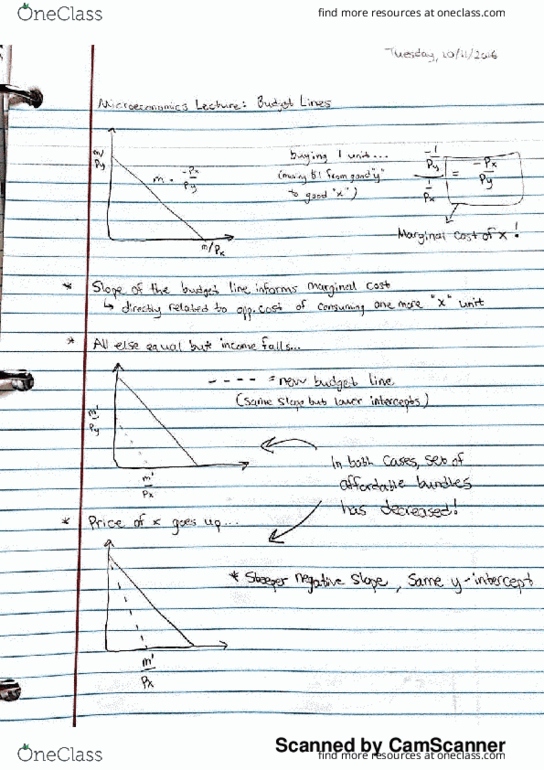 OneClass
find more resources at oneclass.com
Tuesday, 10/11/2016
Microeconomics Lecture: Budget Lines
m/Py
m = -Px/Py
m/Px
buying 1 unit...
(moving $1 from good "y"
to good "x")
-1/Py
1/Px
= -Px/Py
Marginal cost of x!
* Slope of the budget line informs marginal cost
↳ directly related to opp. cost of consuming one more "x" unit
* All else equal but income falls...
---- = new budget line
(same slope but lower intercepts)
m'/Py
m'/Px
In both cases, set of
affordable bundles
has decreased!
* Price of x goes up...
* Steeper negative slope, same y-intercept
m'/Px
Scanned by CamScanner
OneClass
find more resources at oneclass.com